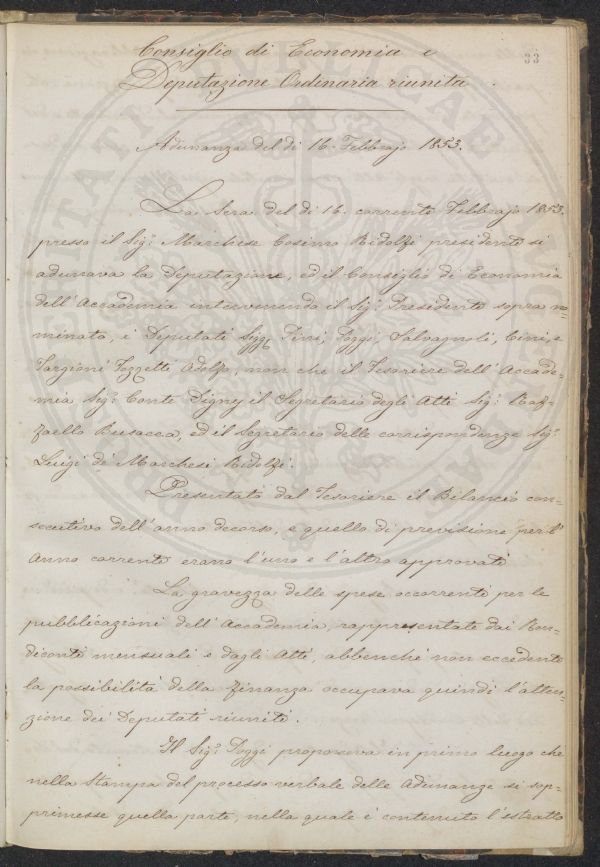 33
Consiglio di Economia e
Deputazione Ordinaria riunita.
Adunanza del dì 16. Febbrajo 1853.
La Sera del dì 16. corrente Febbrajo 1853.
presso il Sig.r Marchese Cosimo Ridolfi presidente si
adunava la Deputazione, ed il Consiglio di Economia
dell'Accademia intervenendo il Sig.r Presidente sopra no=
minato, i Deputati Sigg. Pini, Poggi, Salvagnoli, Cini, e
Targioni Tozzetti Adolfo, non che il Tesoriere dell'Accade=
mia Sig.r Conte Digny il Segretario degli Atti Sig.r Raf=
faello Busacca, ed il Segretario delle corrispondenze Sig.r
Luigi de' Marchesi Ridolfi.
Presentato dal Tesoriere il Bilancio con=
secutivo dell'anno decorso, e quello di previsione per l'
Anno corrente erano l'uno e l'altro approvati
La gravezza delle spese occorrenti per le
pubblicazioni dell'Accademia, rappresentate dai Ren=
diconti mensuali e dagli Atti, abbenchè non eccedente
la possibilità della finanza occupava quindi l'atten=
zione dei Deputati riuniti.
Il Sig.r Poggi proponeva in primo luogo che
nella Stampa del processo verbale delle Adunanze si sop=
primesse quella parte, nella quale è contenuto l'estratto